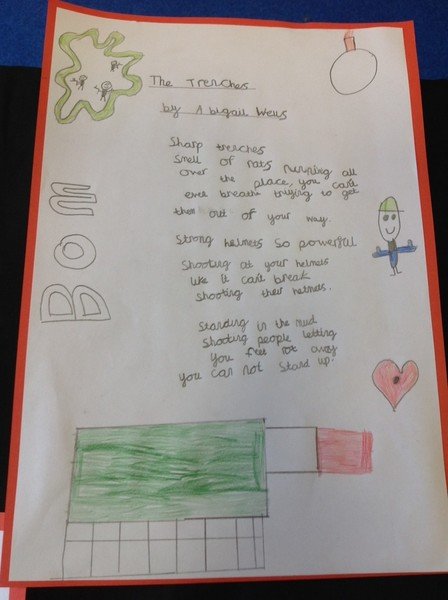 The Trenches
by Abigail Wells
Sharp trenches
Smell of rats running all
over the place, you can't
even breathe trying to get
them out of your way.
Strong helmets so powerful
Shooting at your helmets
like it can't break
Shooting their helmets.
Standing in the mud
Shooting people letting
you feet rot away
you can not stand up.
Bom